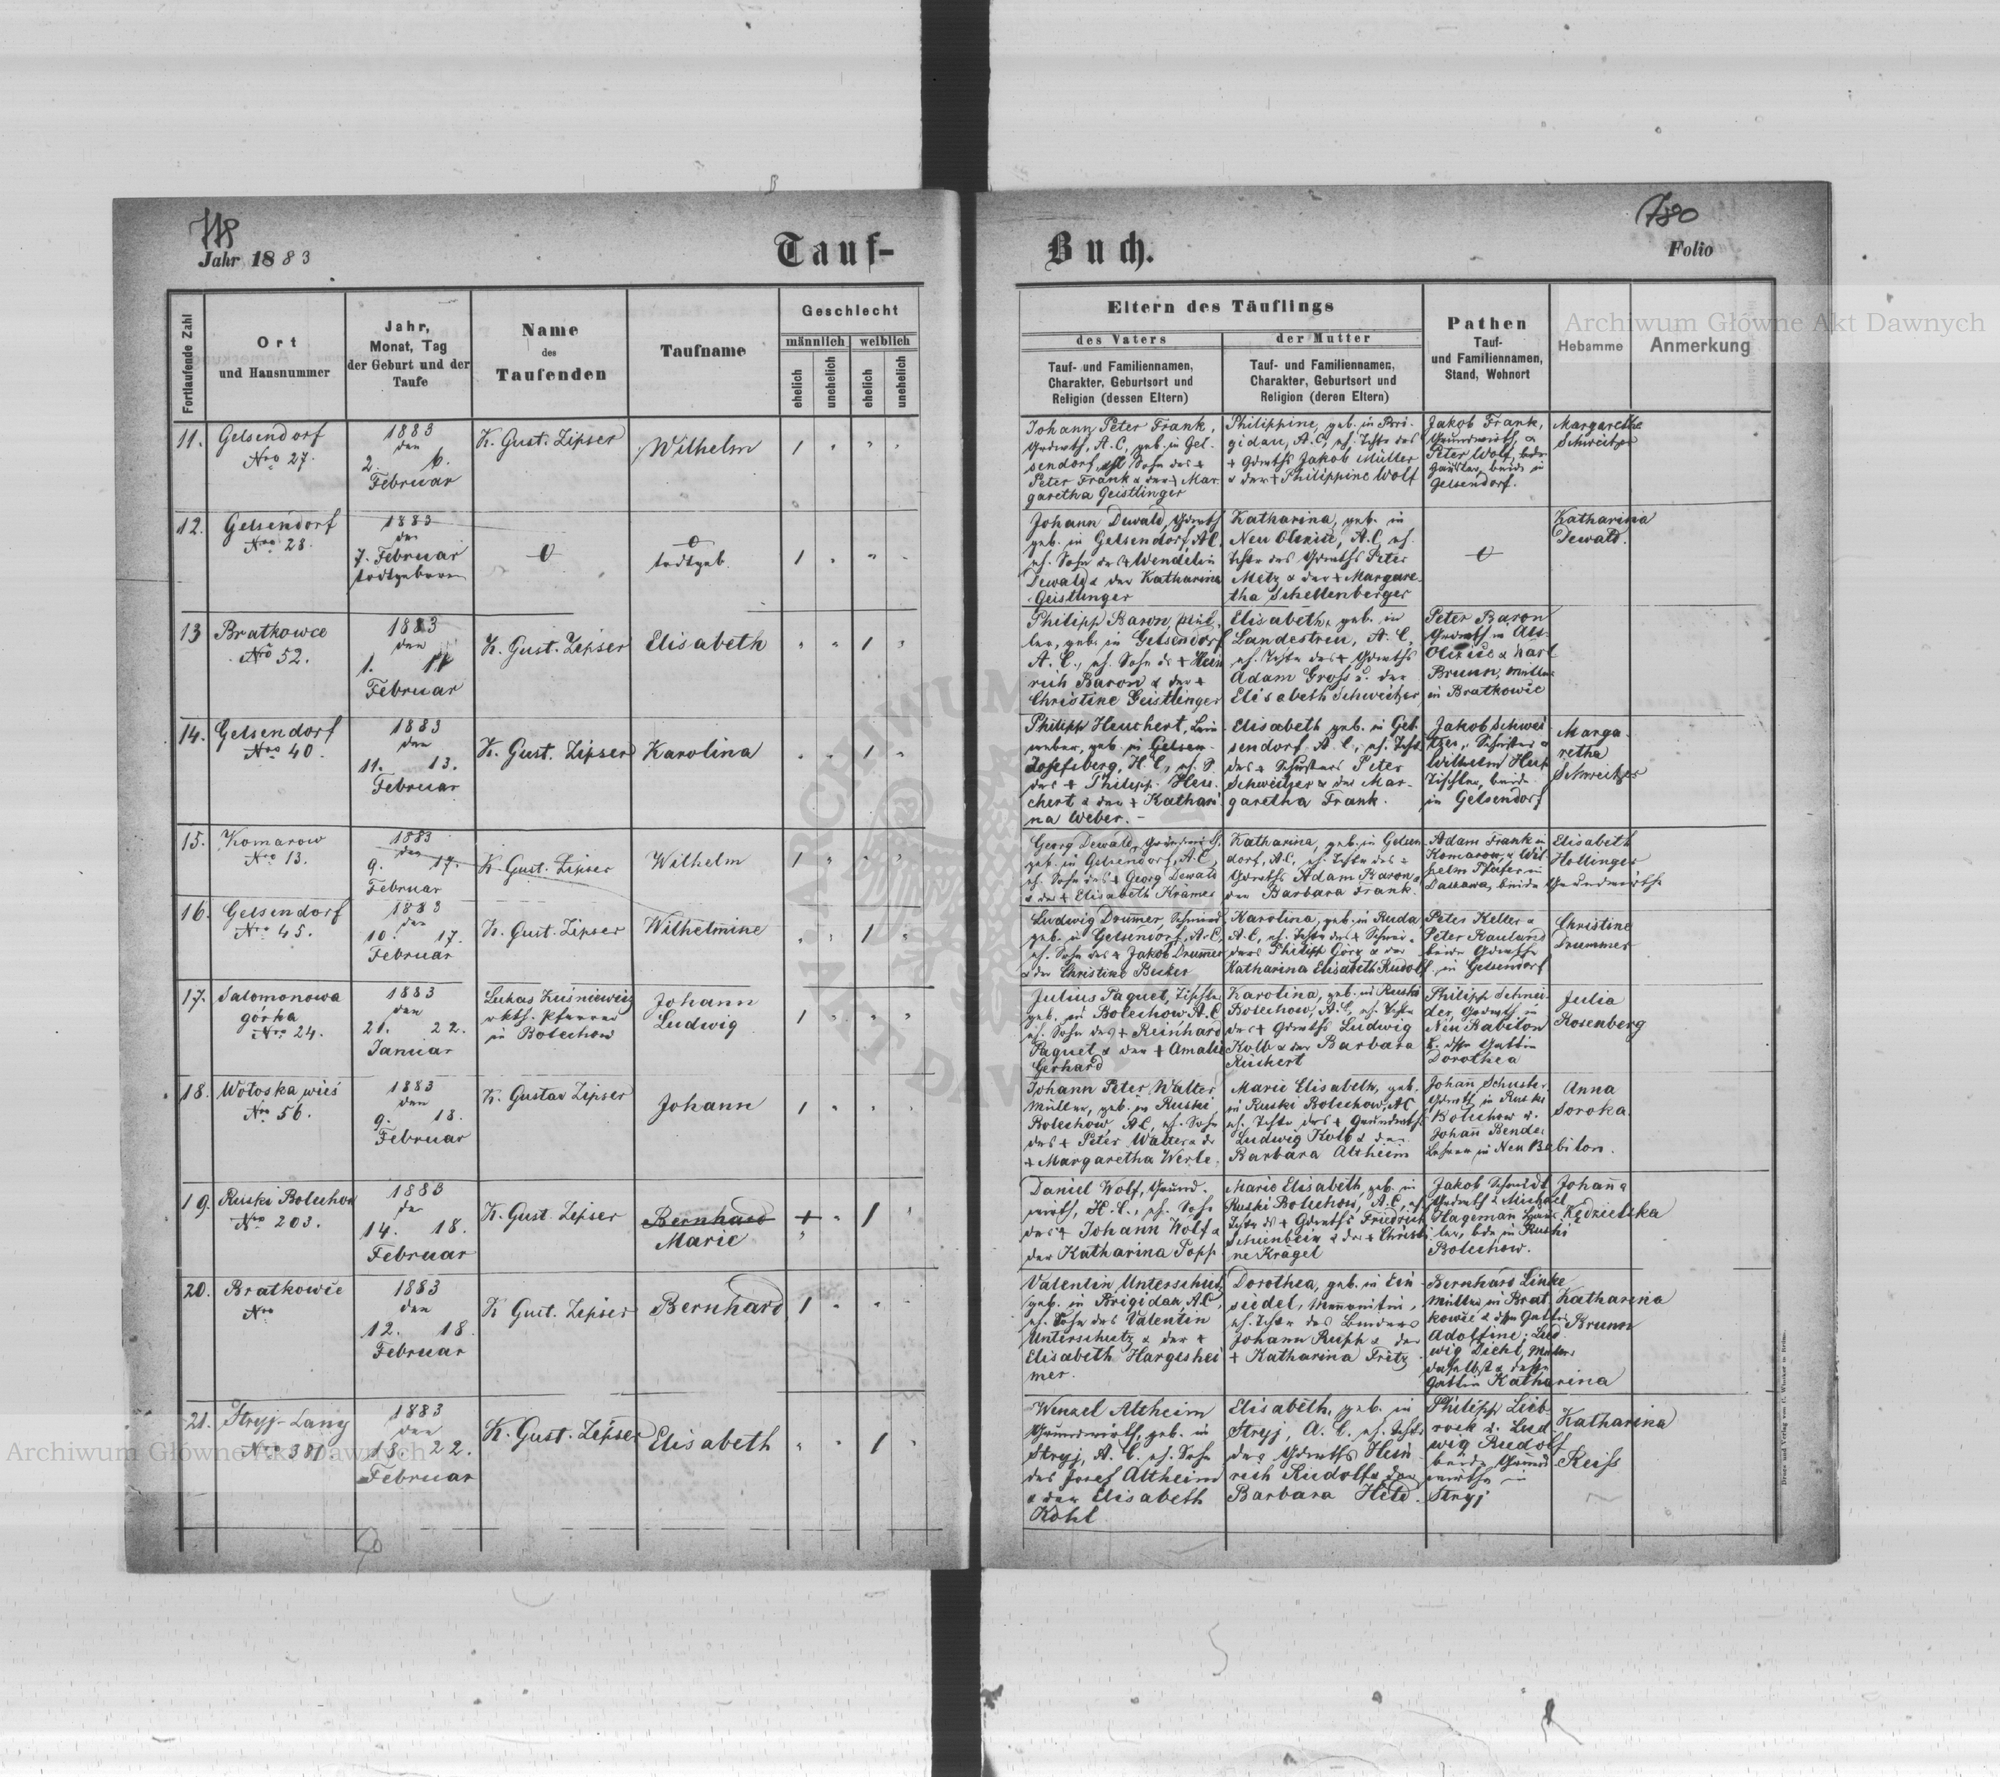 718
Jahr 1883
Tauf-
Fortlaufende Zahl
Ort
und Hausnummer
Jahr,
Monat, Tag
der Geburt und der
Taufe
Name
des
Taufenden
Taufname
Geschlecht
männlich
weiblich
ehelich
unehelich
ehelich
unehelich
11.
Gelsendorf
Nro 27.
1883
den
2. 6.
Februar
K. Gust. Zipser
Wilhelm
1 " " "
12.
Gelsendorf
Nro 28.
1883
den
7. Februar
todtgeboren
todtgeb.
1 " " "
13
Bratkowce
Nro 52.
1883
den
1. 11
Februar
K. Gust. Zipser
Elisabeth
" " 1 "
14.
Gelsendorf
Nro 40.
1883
den
11. 13.
Februar
K. Gust. Zipser
Karolina
" " 1 "
15.
Komarow
Nro 13.
1883
den
9. 17.
Februar
K. Gust. Zipser
Wilhelm
1 " " "
16.
Gelsendorf
Nro 45.
1883
den
10. 17.
Februar
K. Gust. Zipser
Wilhelmine
" " 1 "
17.
Salomonowa
górka
Nro 24.
1883
den
21. 22.
Januar
Lukas
Pfarrer
in Bolechow
Johann
Ludwig
1 " " "
18.
Wołoska wieś
Nro 56.
1883
den
9. 18.
Februar
K. Gustav Zipser
Johann
1 " " "
19.
Ruski Bolechow
Nro 203.
1883
den
14. 18.
Februar
K. Gust. Zipser
Bernhard
Marie
1 " 1 "
20.
Bratkowie
Nro
1883
den
12. 18.
Februar
K Gust. Zipser
Bernhard
1 " " "
21.
Stryj-Lany
Nro 381
1883
den
18. 22.
Februar
K. Gust. Zipser
Elisabeth
" " 1 "
780
Buch.
Folio
Eltern des Täuflings
des Vaters
der Mutter
Tauf- und Familiennamen,
Charakter, Geburtsort und
Religion (dessen Eltern)
Tauf- und Familiennamen,
Charakter, Geburtsort und
Religion (deren Eltern)
Pathen
Tauf-
und Familiennamen,
Stand, Wohnort
Hebamme
Anmerkung
Johann Peter Frank,
A. C., geb. in Gel-
sendorf, Sohn des +
Peter Frank & der + Mar-
garetha Geistlinger
Philippine, geb. in Bri-
gidau, A. C., eh. Tochter des
+ Jakob Müller
& der + Philippine Wolf
Jakob Frank,
Grundwirth, &
Peter Wolf, bde
beide in
Gelsendorf.
Margarethe
Schweitzer
Johann Dewald,
geb. in Gelsendorf, A.C.
eh. Sohn des + Wendelin
Dewald & der Katharina
Geistlinger
Katharina, geb. in
Neu Olexice, A. C, eh.
Tochter des Peter
Metz & der + Margare-
tha Schellenberger
Katharina
Dewald.
Philipp Baron, Mül-
ler, geb. in Gelsendorf
A. C., eh. Sohn ds + Hein
rich Baron & der +
Christine Geistlinger
Elisabeth, geb. in
Landestreu, A. C,
eh. Tochter des +
Adam Gross u. der
Elisabeth Schweitzer
Peter Baron
in Alt-
Olexice & Karl
Brunn, Müller
in Bratkowie
Philipp Heuchert, Lein
weber, geb. in Gelsen-
Josefsberg, H. C, eh. S.
des + Philipp Heu-
chert & der + Kathari
na Weber. -
Elisabeth geb. in Gel-
sendorf, A. C., eh. Tocht.
des + Schusters Peter
Schweitzer & der Mar-
garetha Frank.
Jakob Schwei
tzer, Schuster &
Wilhelm
Tischler, beide
in Gelsendorf
Marga-
retha
Schweitzer
Georg Dewald,
geb. in Gelsendorf, A. C,
eh. Sohn des + Georg Dewald
& der + Elisabeth Krämer
Katharina, geb. in Gelsen
dorf, A. C, eh. Tochter des
Adam Baron &
der Barbara Frank.
Adam Frank in
Komarow, & Wil
helm Pfeifer in
Daszawa, beide Grundwirthe
Elisabeth
Hollinger
Ludwig Drumer, Schmied
geb. in Gelsendorf, A. C,
eh. Sohn des + Jakob Drumer
& der Christine Becker
Karolina, geb. in Ruda,
A. C., eh. Tochter des + Schnei-
ders Philipp Görg & der
Katharina Elisabeth Rudolf
Peter Keller &
Peter Rauland
beide
in Gelsendorf
Christine
Drummer
Julius Paquet, Tischler
geb. in Bolechow A. C
eh. Sohn des + Reinhard
Paquet & der + Amalie
Gerhard
Karolina, geb. in Ruski
Bolechow, A. C., eh. Tochter
des + Ludwig
Kolb & der Barbara
Reichert
Philipp Schnei
der, in
Neu Babilon
Gattin
Dorothea
Julia
Rosenberg
Johann Peter Walter
Müller, geb. in Ruski
Bolechow, A. C, eh. Sohn
des + Peter Walter & der
+ Margaretha Werle.
Marie Elisabeth, geb.
in Ruski Bolechow, A C
eh. Tochter des + Grundwirths
Ludwig Kolb & der
Barbara Altheim
Johañ Schuster
in Ruski
Bolechow &
Johañ Bender
Lehrer in Neu Babilon.
Anna
Soroka.
Daniel Wolf, Grund-
wirth, H. C., eh. Sohn
des + Johann Wolf &
der Katharina Popp
Marie Elisabeth, geb. in
Ruski Bolechow, A. C, eh.
Tochter ds + Friedrich
Schienbein & der + Christi
ne Kragel
Jakob Schmidt
& Michael
Hageman
bde in Ruski
Bolechow.
Johana
Kędzielska
Valentin Unterschütz
geb. in Brigidau, A C,
eh. Sohn des Valentin
Unterschütz & der +
Elisabeth Hargeshei
mer.
Dorothea, geb. in Ein
siedel, Mennonitin,
eh. Tochter des Binders
Johann Rupp & der
+ Katharina Fritz
Bernhard Linke
Müller in Brat
kowie & Gattin
Adolfine, Lud-
wig Diehl, Müller
daselbst & dessen
Gattin Katharina
Katharina
Brunn
Wenzel Altheim
Grundwirth, geb. in
Stryj, A. C. eh. Sohn
des Josef Altheim
& der Elisabeth
Kohl
Elisabeth, geb. in
Stryj, A. C. eh. Tochter
des Hein
rich Rudolf & der
Barbara Held.
Philipp Lieb
rock & Lud
wig Rudolf
beide Grund
wirthe in
Stryj
Katharina
Reiss
Druck und Verlag von C. Winiker in Brünn.
Archiwum Główne Akt Dawnych
Archiwum Główne Akt Dawnych
ARCHIWUM
AKT DAWNYCH